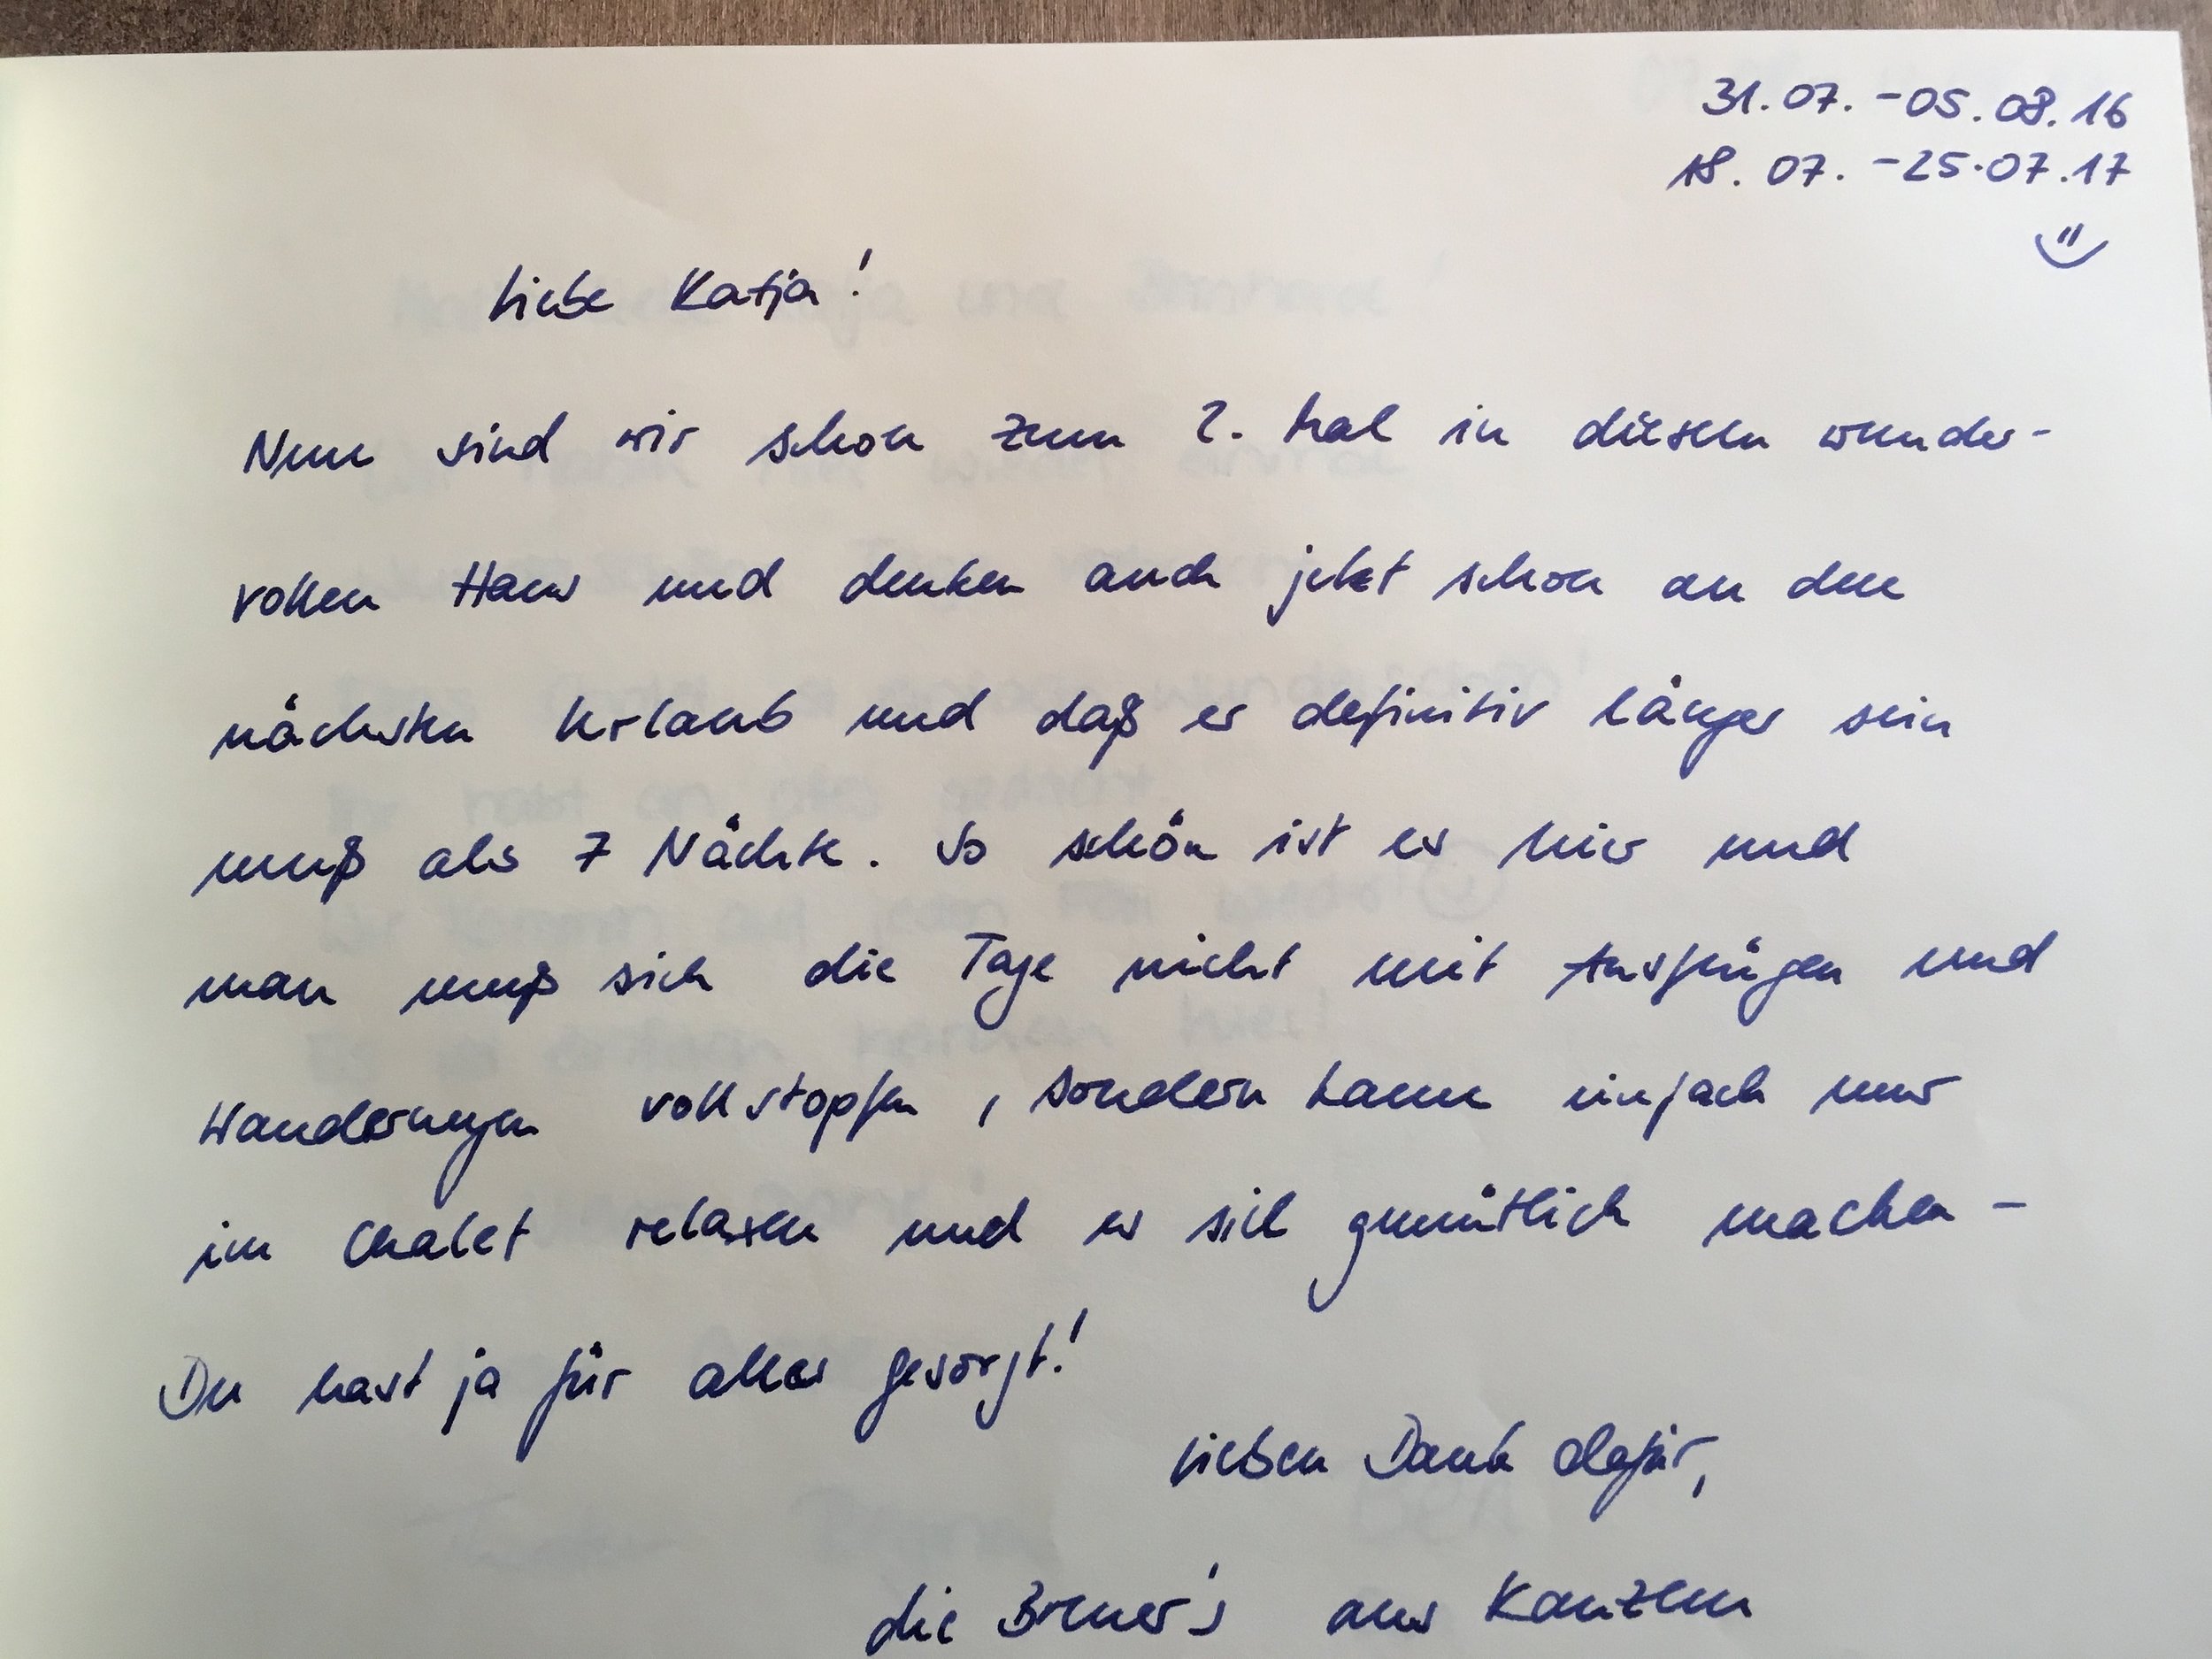 31.07. - 05.08.16
18.07. - 25.07.17
Liebe Katja!
Nun sind wir schon zum 2. Mal in diesem wunder-
vollen Haus und denken auch jetzt schon an den
nächsten Urlaub und daß er definitiv länger sein
muß als 7 Nächte. So schön ist es hier und
man muß sich die Tage nicht mit Ausflügen und
Wanderungen vollstopfen, sondern kann einfach nur
im Chalet relaxen und es sich gemütlich machen -
Du hast ja für alles gesorgt!
Lieben Dank dafür,
die aus Kanzem